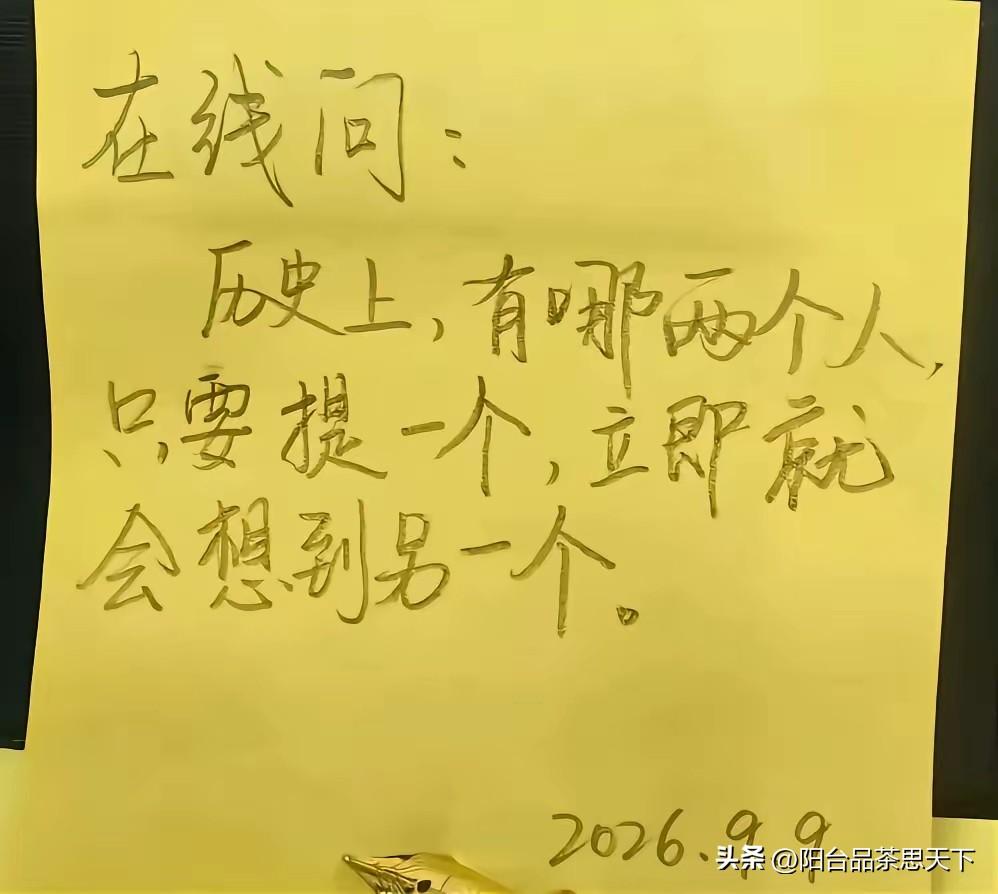 在线问：
历史上，有哪两个人，
只要提一个，立即就
会想到另一个。
2026.9.9
头条 @阳台品茶思天下